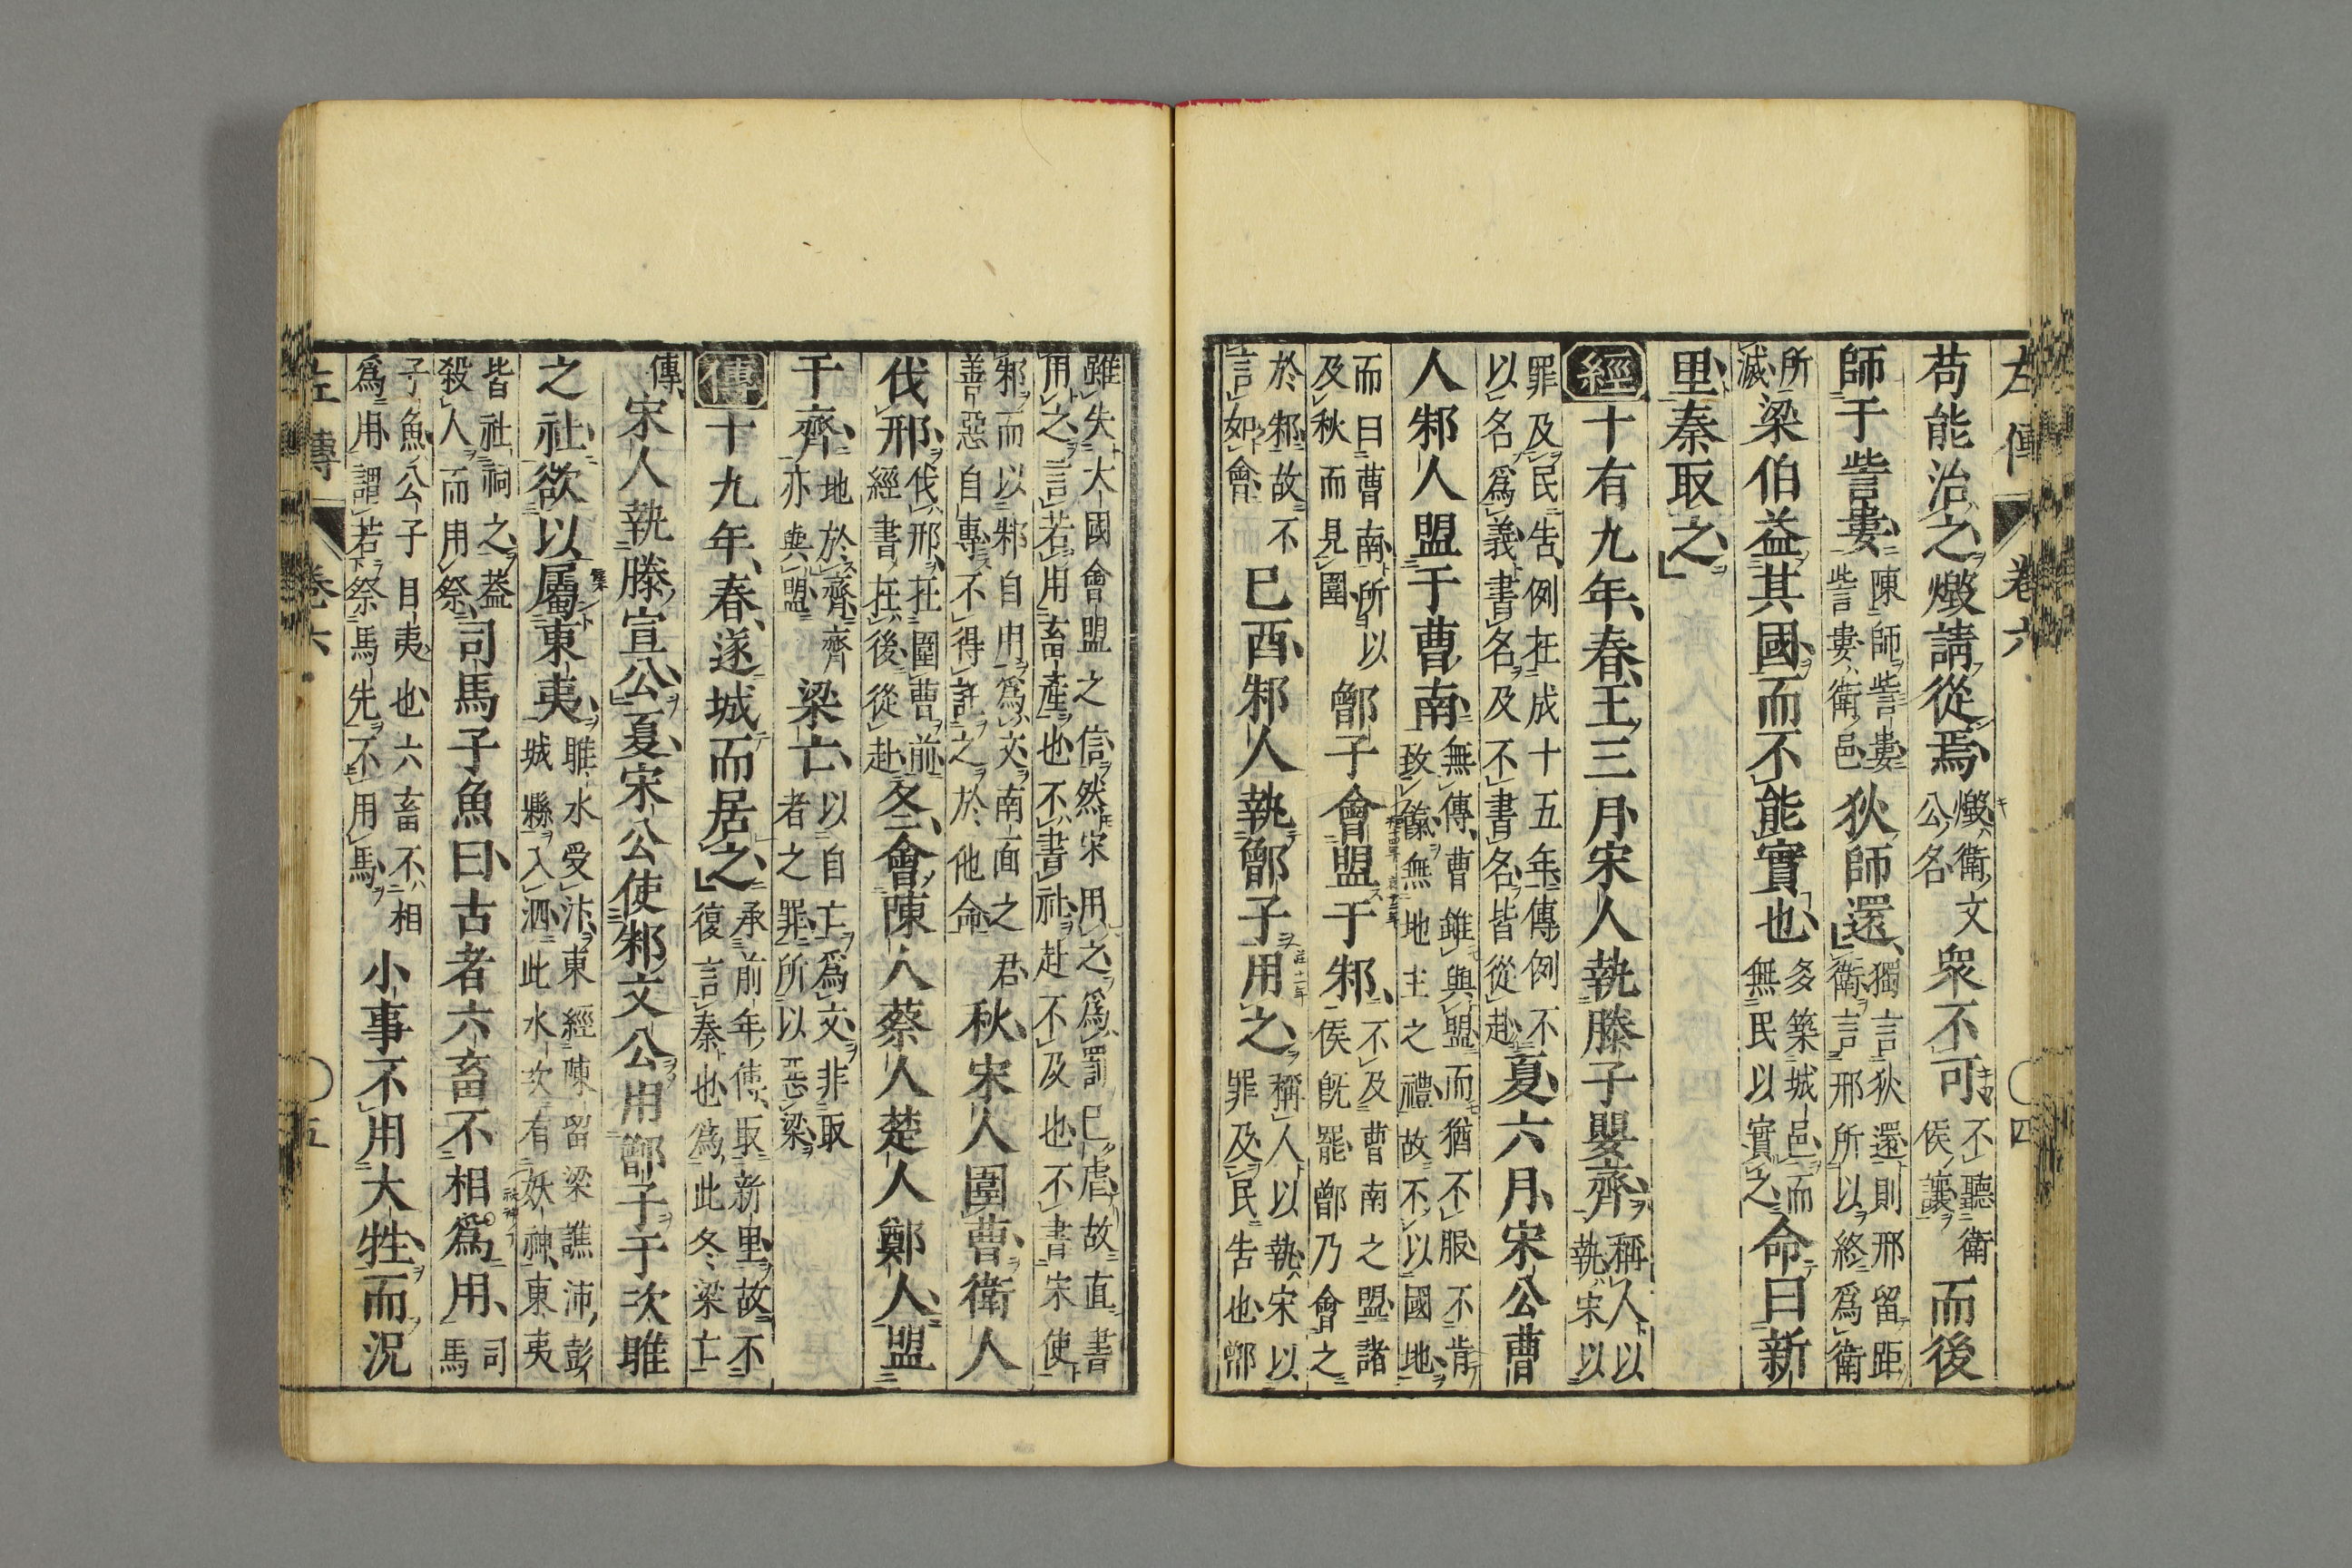 左傳 卷六 四
苟能治之燬請從焉燬衛文公名衆不可不聽衛侯讓而後
師于訾婁陳師訾婁訾婁衛邑狄師還獨言狄還則邢留距衛言邢所以終爲衛
所滅梁伯益其國而不能實也多築城邑而無民以實之命曰新
里秦取之
經十有九年春王三月宋人執滕子嬰齊稱人以執宋以
罪及民告例在成十五年傳例不以名爲義書名及不書名皆從赴夏六月宋公曹
人邾人盟于曹南無傳曹雖與盟而猶不服不肯致餼無地主之禮故不以國地
而曰曹南所以及秋而見圍鄫子會盟于邾不及曹南之盟諸侯既罷鄫乃會之
於邾故不言如會已酉邾人執鄫子用之稱人以執宋以罪及民告也鄫
雖失大國會盟之信然宋用之爲罰已虐故直書用之言若用畜產也不書社赴不及也不書宋使
邾而以邾自用爲文南面之君善惡自專不得託之於他命秋宋人圍曹衛人
伐邢伐邢在圍曹前經書在後從赴冬會陳人蔡人楚人鄭人盟
于齊地於齊齊亦與盟梁亡以自亡爲文非取者之罪所以惡梁
傳十九年春遂城而居之承前年傳取新里故不復言秦也爲此冬梁亡
傳宋人執滕宣公夏宋公使邾文公用鄫子于次睢
之社欲以屬東夷睢水受汴東經陳留梁譙沛彭城縣入泗此水次有妖神東夷
皆社祠之蓋殺人而用祭司馬子魚曰古者六畜不相爲用司馬
子魚公子目夷也六畜不相爲用謂若祭馬先不用馬小事不用大牲而況
左傳 卷六 五